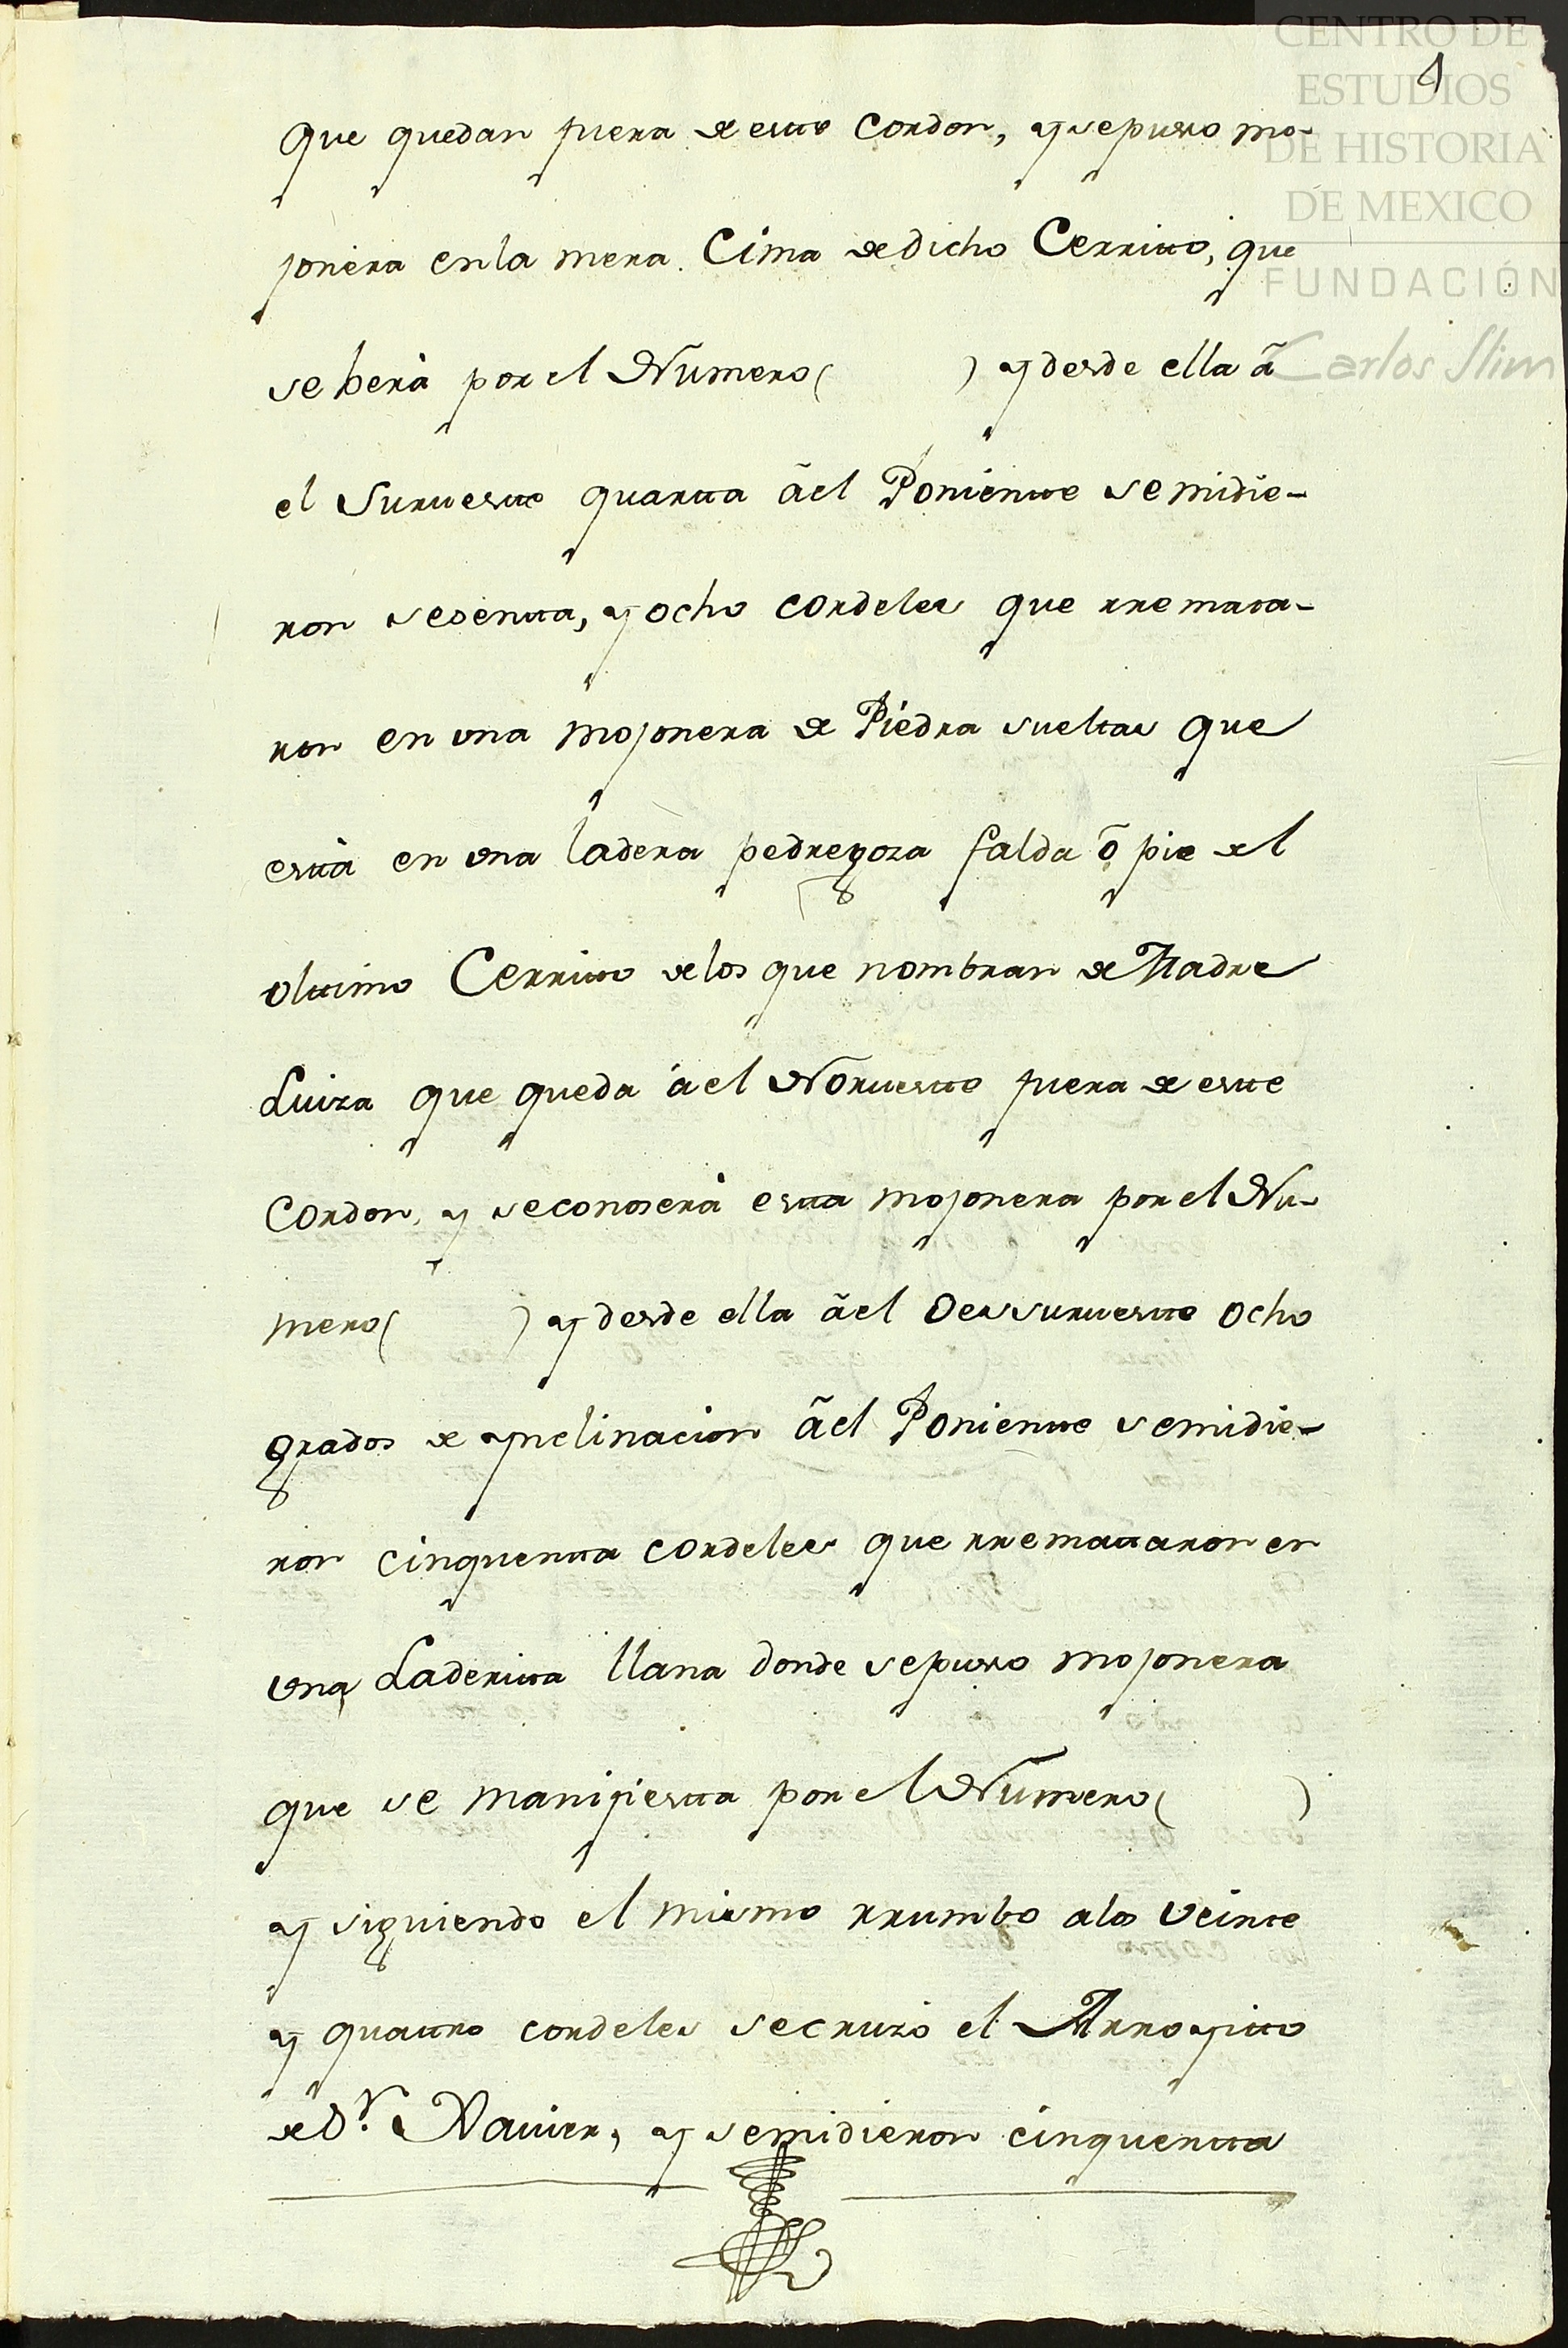 CENTRO DE
ESTUDIOS
DE HISTORIA
DE MEXICO
FUNDACIÓN
Carlos Slim
que quedan fuera de este cordon, y se puso mo-
jonera en la mera Cima de dicho Cerritto, que
se berà por el Numero( ) y desde ella ã
el Surueste quartta ãel Ponientte se midie-
ron sesentta, y ocho cordeles que rremata-
ron en una mojonera de Piedra sueltas que
esttà en una ladera pedregoza falda õ pie del
olttimo Cerritto de los que nombran de Madre
Luiza que queda àel Norueste fuera de este
Cordon, y se conoserà estta mojonera por el Nu-
mero( ) y desde ella ãel Oessurueste ocho
grados de ynclinacion ãel Ponientte se midie-
ron cinquentta cordeles que rremattaron en
una Laderitta llana donde se puso mojonera
que se manifiestta por el Numero( )
y siguiendo el mismo rrumbo a los veinte
y quattro cordeles se cruzò el Arroyitto
de Sr. Xauier, y se midieron cinquentta